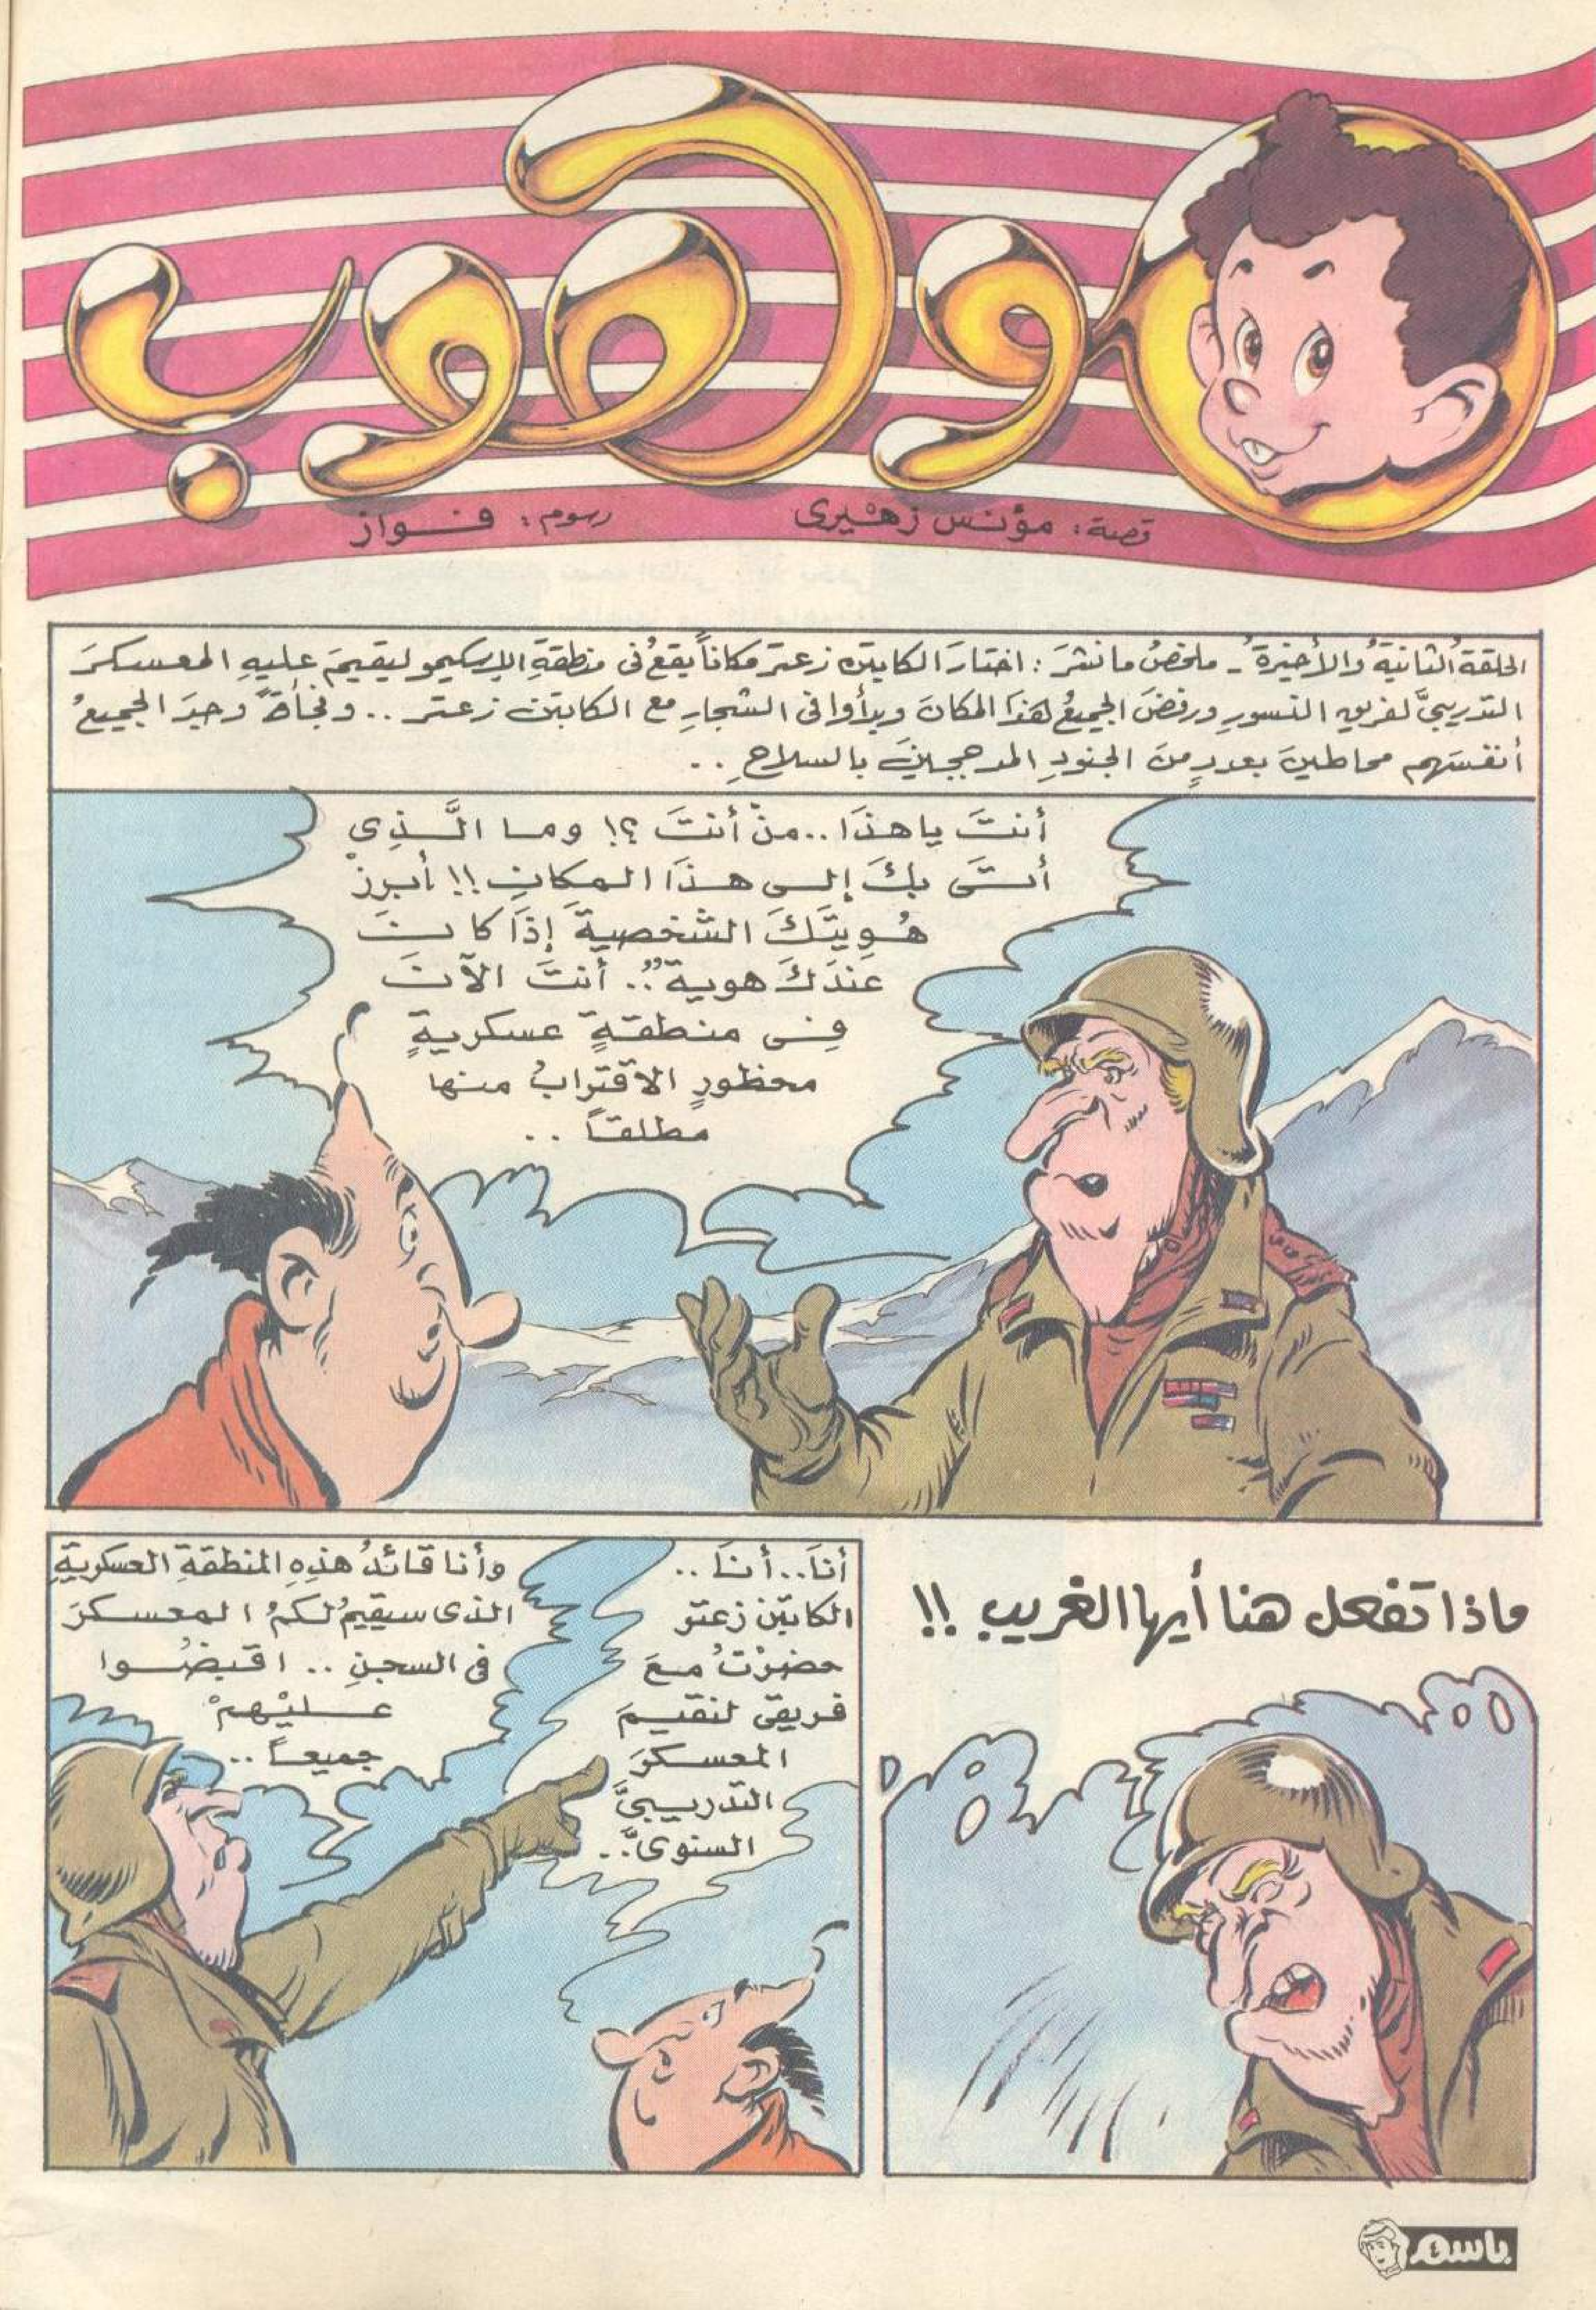 موهوب
قصة: مؤنس زهيري
رسوم: فواز
الحلقةُ الثانيةُ والأخيرةُ - ملخصُ ما نشرَ: اختارَ الكابتن زعتر مكاناً يقعُ فى منطقةِ الإسكيمو ليقيمَ عليهِ المعسكرَ
التدريبىَّ لفريقِ النسورِ ورفضَ الجميعُ هذا المكانَ وبدأوا فى الشجارِ مع الكابتن زعتر .. وفجأةً وجدَ الجميعُ
أنفسَهم محاطينَ بعددٍ منَ الجنودِ المدججينَ بالسلاحِ ..
أنتَ ياهذَا .. منْ أنتَ ؟! وما الَّذِى
أتَى بِكَ إلى هذَا المكانِ !! أبرِزْ
هُوِيتَكَ الشخصيةَ إذَا كانتَ
عندَكَ هوية".. أنتَ الآنَ
فِى منطقةٍ عسكريةٍ
محظورٍ الاقترابُ منها
مطلقاً ..
ماذا تفعل هنا أيها الغريب !!
أنَا.. أنَا ..
الكابتن زعتر
حضرْتُ معَ
فريقى لنقيمَ
المعسكرَ
التدريبىَّ
السنوىَّ..
وأنا قائدُ هذِهِ المنطقةِ العسكريةِ
الذى سيقيمُ لكمُ المعسكرَ
فى السجنِ .. اقبضُوا
عليْهمْ
جميعاً ..
باسم
٤